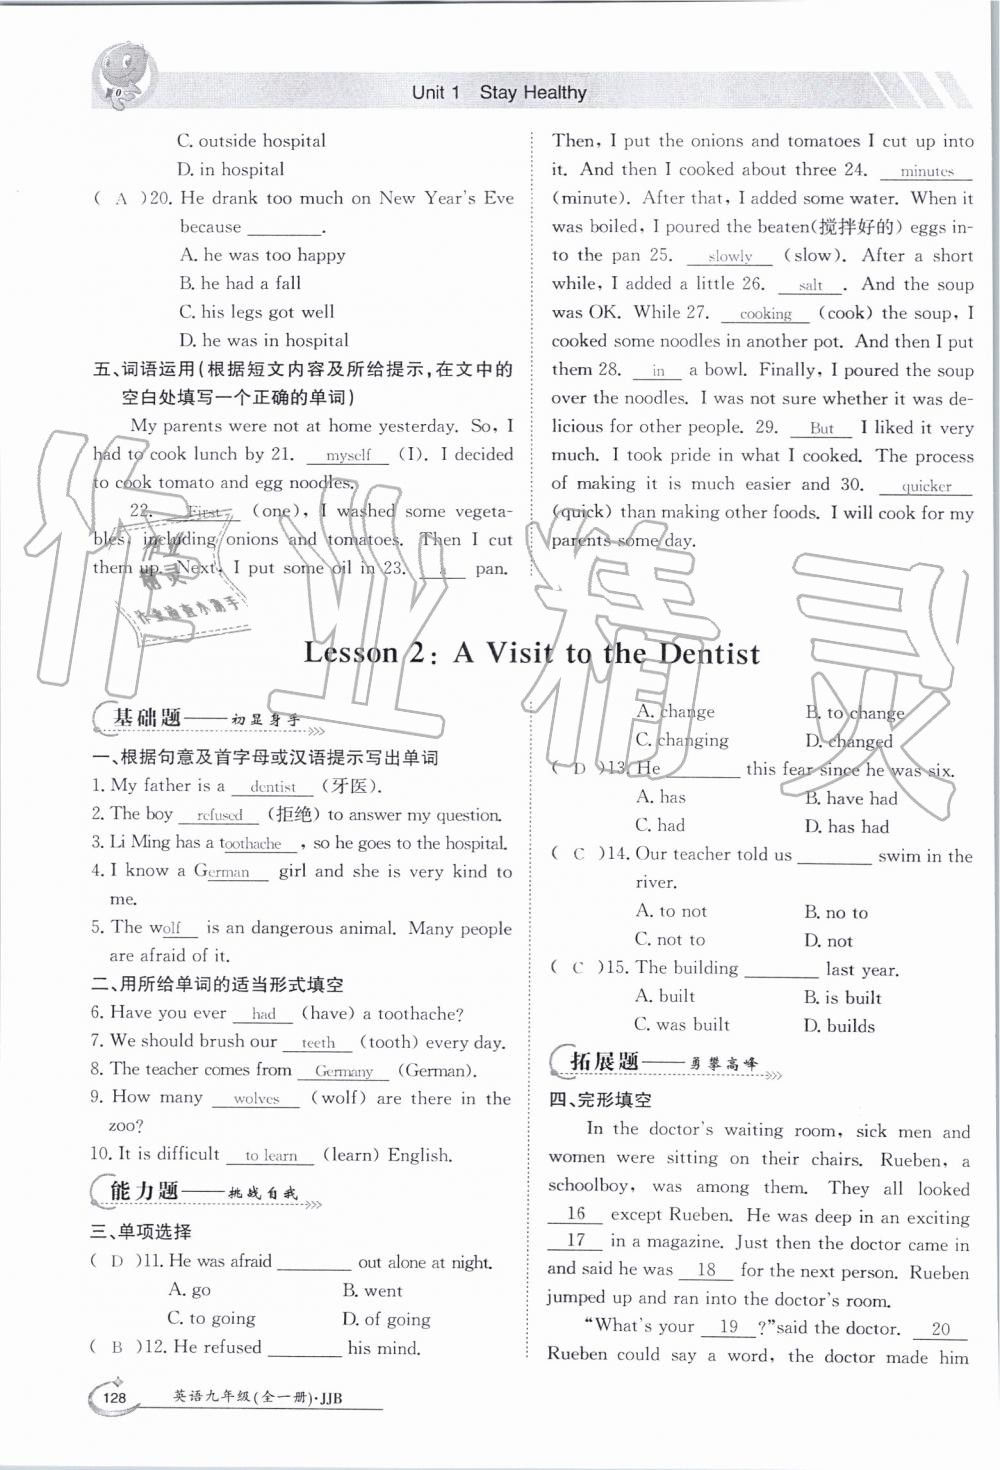 Unit 1 Stay Healthy
C. outside hospital
D. in hospital
( A )20. He drank too much on New Year's Eve
because ________.
A. he was too happy
B. he had a fall
C. his legs got well
D. he was in hospital
五、词语运用(根据短文内容及所给提示,在文中的
空白处填写一个正确的单词)
My parents were not at home yesterday. So, I
had to cook lunch by 21. myself (I). I decided
to cook tomato and egg noodles.
22. First (one), I washed some vegeta-
bles, including onions and tomatoes. Then I cut
them up. Next, I put some oil in 23. a pan.
Then, I put the onions and tomatoes I cut up into
it. And then I cooked about three 24. minutes
(minute). After that, I added some water. When it
was boiled, I poured the beaten(搅拌好的) eggs in-
to the pan 25. slowly (slow). After a short
while, I added a little 26. salt . And the soup
was OK. While 27. cooking (cook) the soup, I
cooked some noodles in another pot. And I put
them 28. in a bowl. Finally, I poured the soup
over the noodles. I was not sure whether it was de-
licious for other people. 29. But I liked it very
much. I took pride in what I cooked. The process
of making it is much easier and 30. quicker
(quick) than making other foods. I will cook for my
parents some day.
Lesson 2: A Visit to the Dentist
基础题——初显身手
一、根据句意及首字母或汉语提示写出单词
1. My father is a dentist (牙医).
2. The boy refused (拒绝) to answer my question.
3. Li Ming has a toothache , so he goes to the hospital.
4. I know a German girl and she is very kind to
me.
5. The wolf is an dangerous animal. Many people
are afraid of it.
二、用所给单词的适当形式填空
6. Have you ever had (have) a toothache?
7. We should brush our teeth (tooth) every day.
8. The teacher comes from Germany (German).
9. How many wolves (wolf) are there in the
zoo?
10. It is difficult to learn (learn) English.
能力题——挑战自我
三、单项选择
( D )11. He was afraid ________ out alone at night.
A. go B. went
C. to going D. of going
( B )12. He refused ________ his mind.
A. change B. to change
C. changing D. changed
( D )13. He ________ this fear since he was six.
A. has B. have had
C. had D. has had
( C )14. Our teacher told us ________ swim in the
river.
A. to not B. no to
C. not to D. not
( C )15. The building ________ last year.
A. built B. is built
C. was built D. builds
拓展题——勇攀高峰
四、完形填空
In the doctor's waiting room, sick men and
women were sitting on their chairs. Rueben, a
schoolboy, was among them. They all looked
16 except Rueben. He was deep in an exciting
17 in a magazine. Just then the doctor came in
and said he was 18 for the next person. Rueben
jumped up and ran into the doctor's room.
"What's your 19 ?"said the doctor. 20
Rueben could say a word, the doctor made him
128 英语九年级(全一册)·JJB
作业精灵
作业
精灵
作业检查小高手